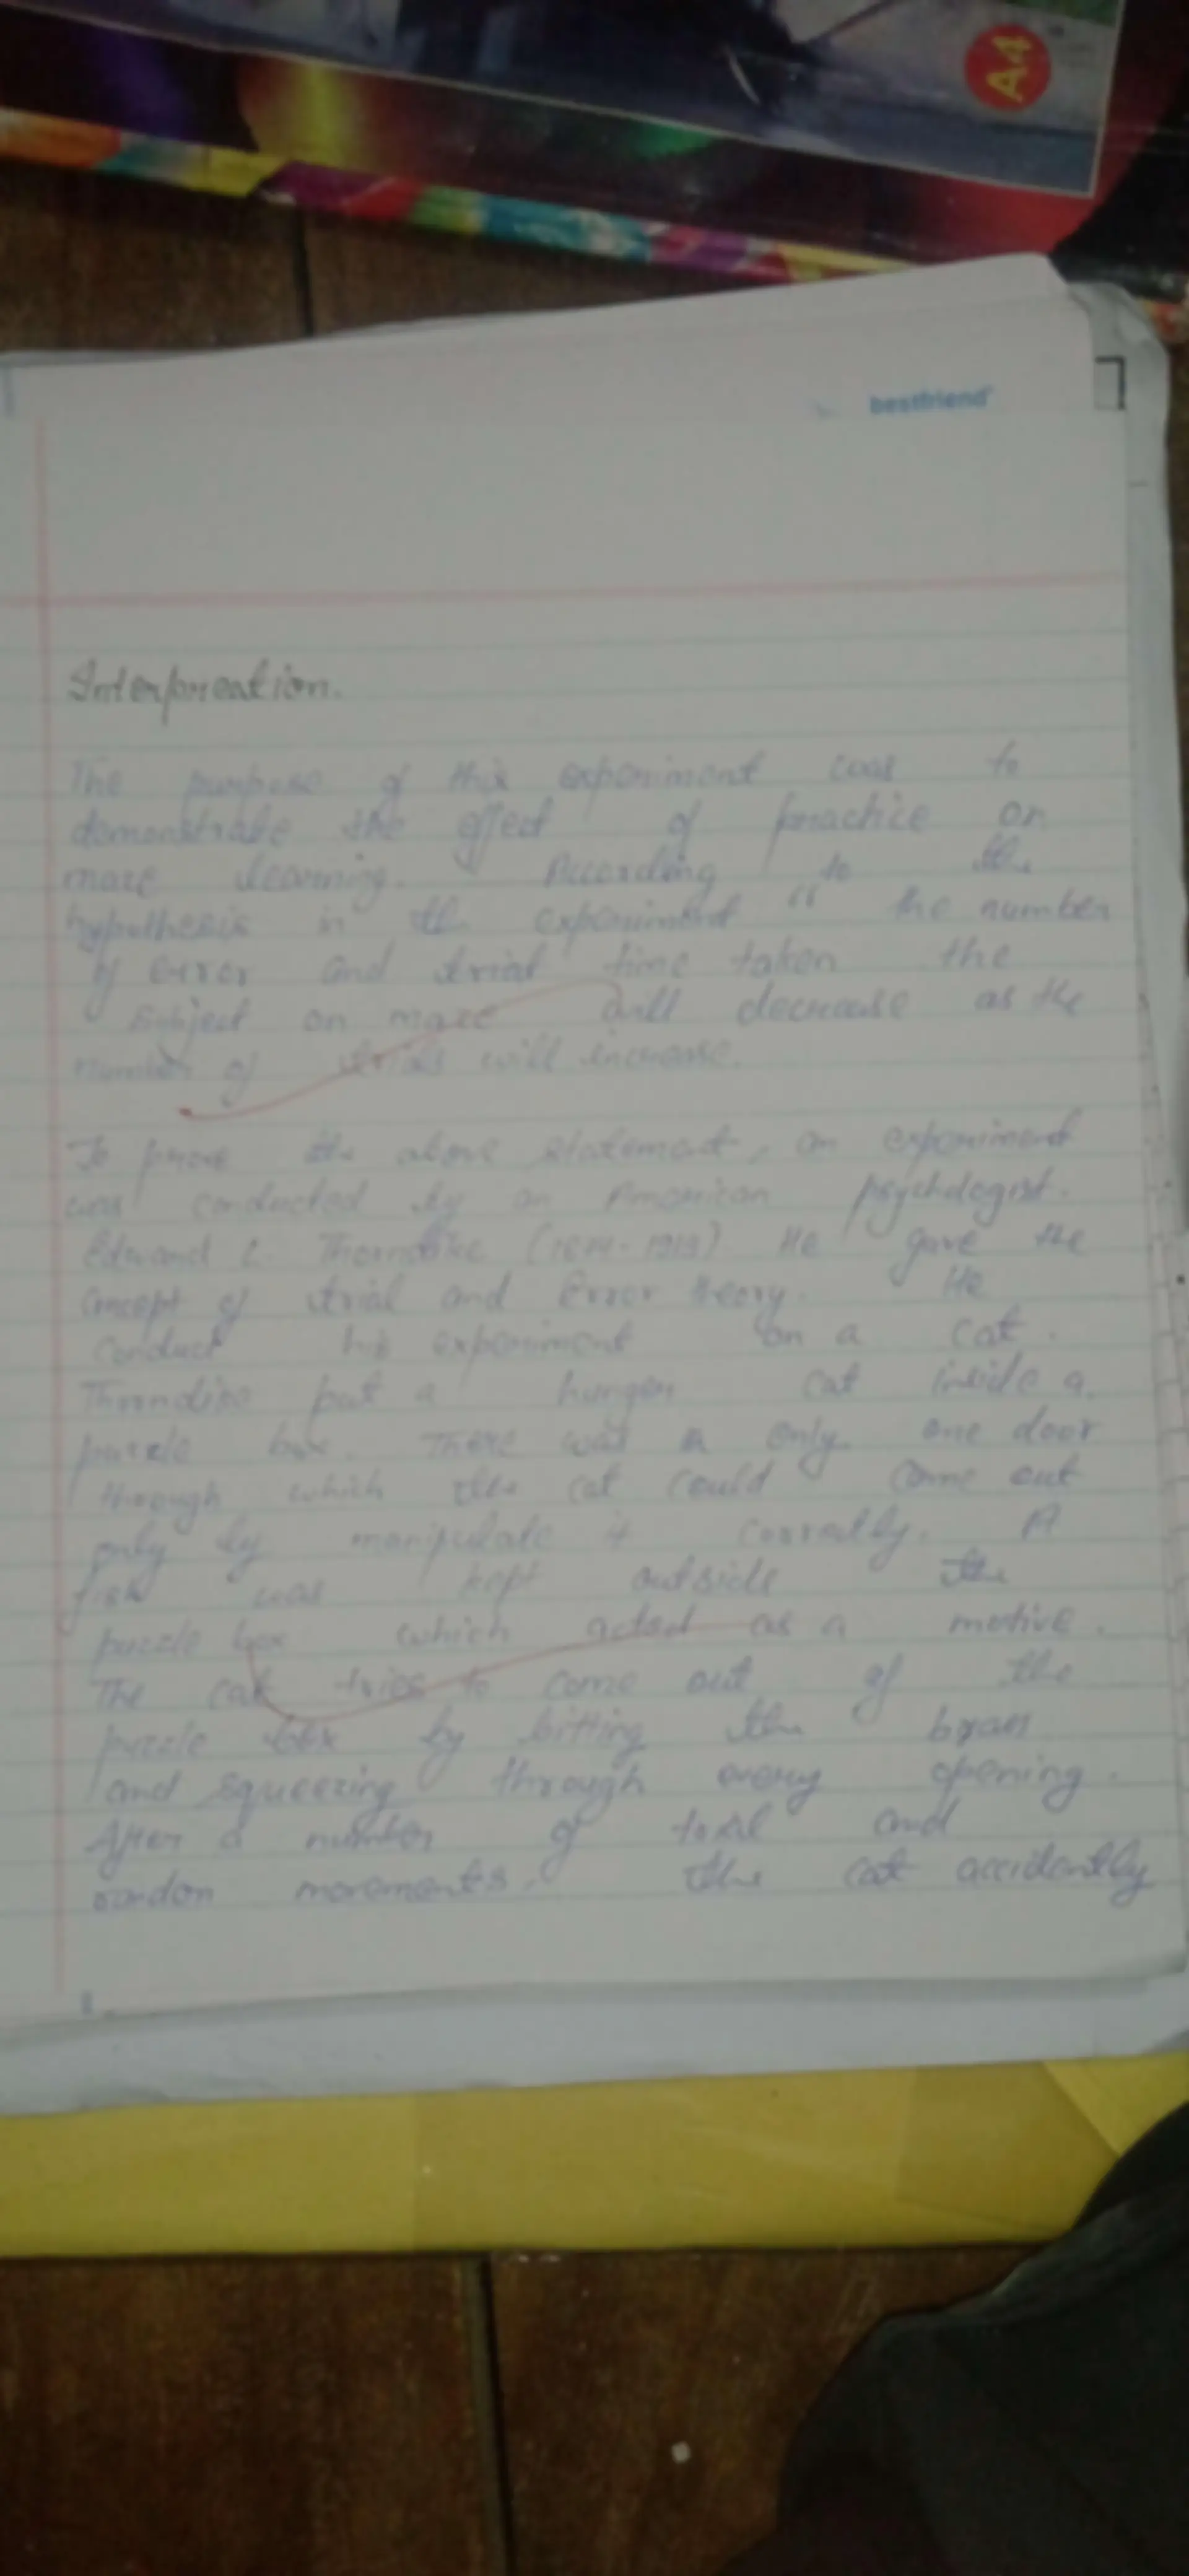 A4
bestfriend
Interpreation.
The purpose of this experiment was to
demonstrate the effect of practice on
maze learning. According to the
hypothesis in the experiment " the number
of error and trial time taken the
subject on maze will decrease as the
number of trials will increase.
To prove the above statement, an experiment
was conducted by an American psychologist.
Edward L. Thorndike He gave the
concept of trial and Error theory. He
conduct his experiment on a cat.
Thorndike put a cat inside a
puzzle box. There was a only one door
through which the cat could come out
only by manipulate it correctly. A
fish was kept outside the
puzzle box which acted as a motive.
The cat tries to come out of the
puzzle box by bitting the
and squeezing through every opening.
After a number of and
movements. the cat accidently